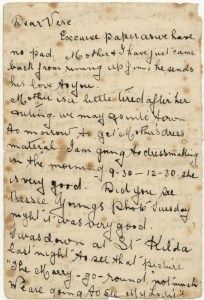 Dear Vere
Excuse paper as we have
no pad. Mother & I have just came
back from rining up Jim; he sends
his love to you.
Mother is a little tired after her
outing, we may go into town
to morrow to get Mothers dress
material I am going to dressmaking
in the morning 9-30 - 12-30. she
is very good. Did you see
Bessie Youngs photo Tuesday
night it was very good.
I was down at St Kilda
last night to see that picture
"The Merry-go-round," not much
We are going to see